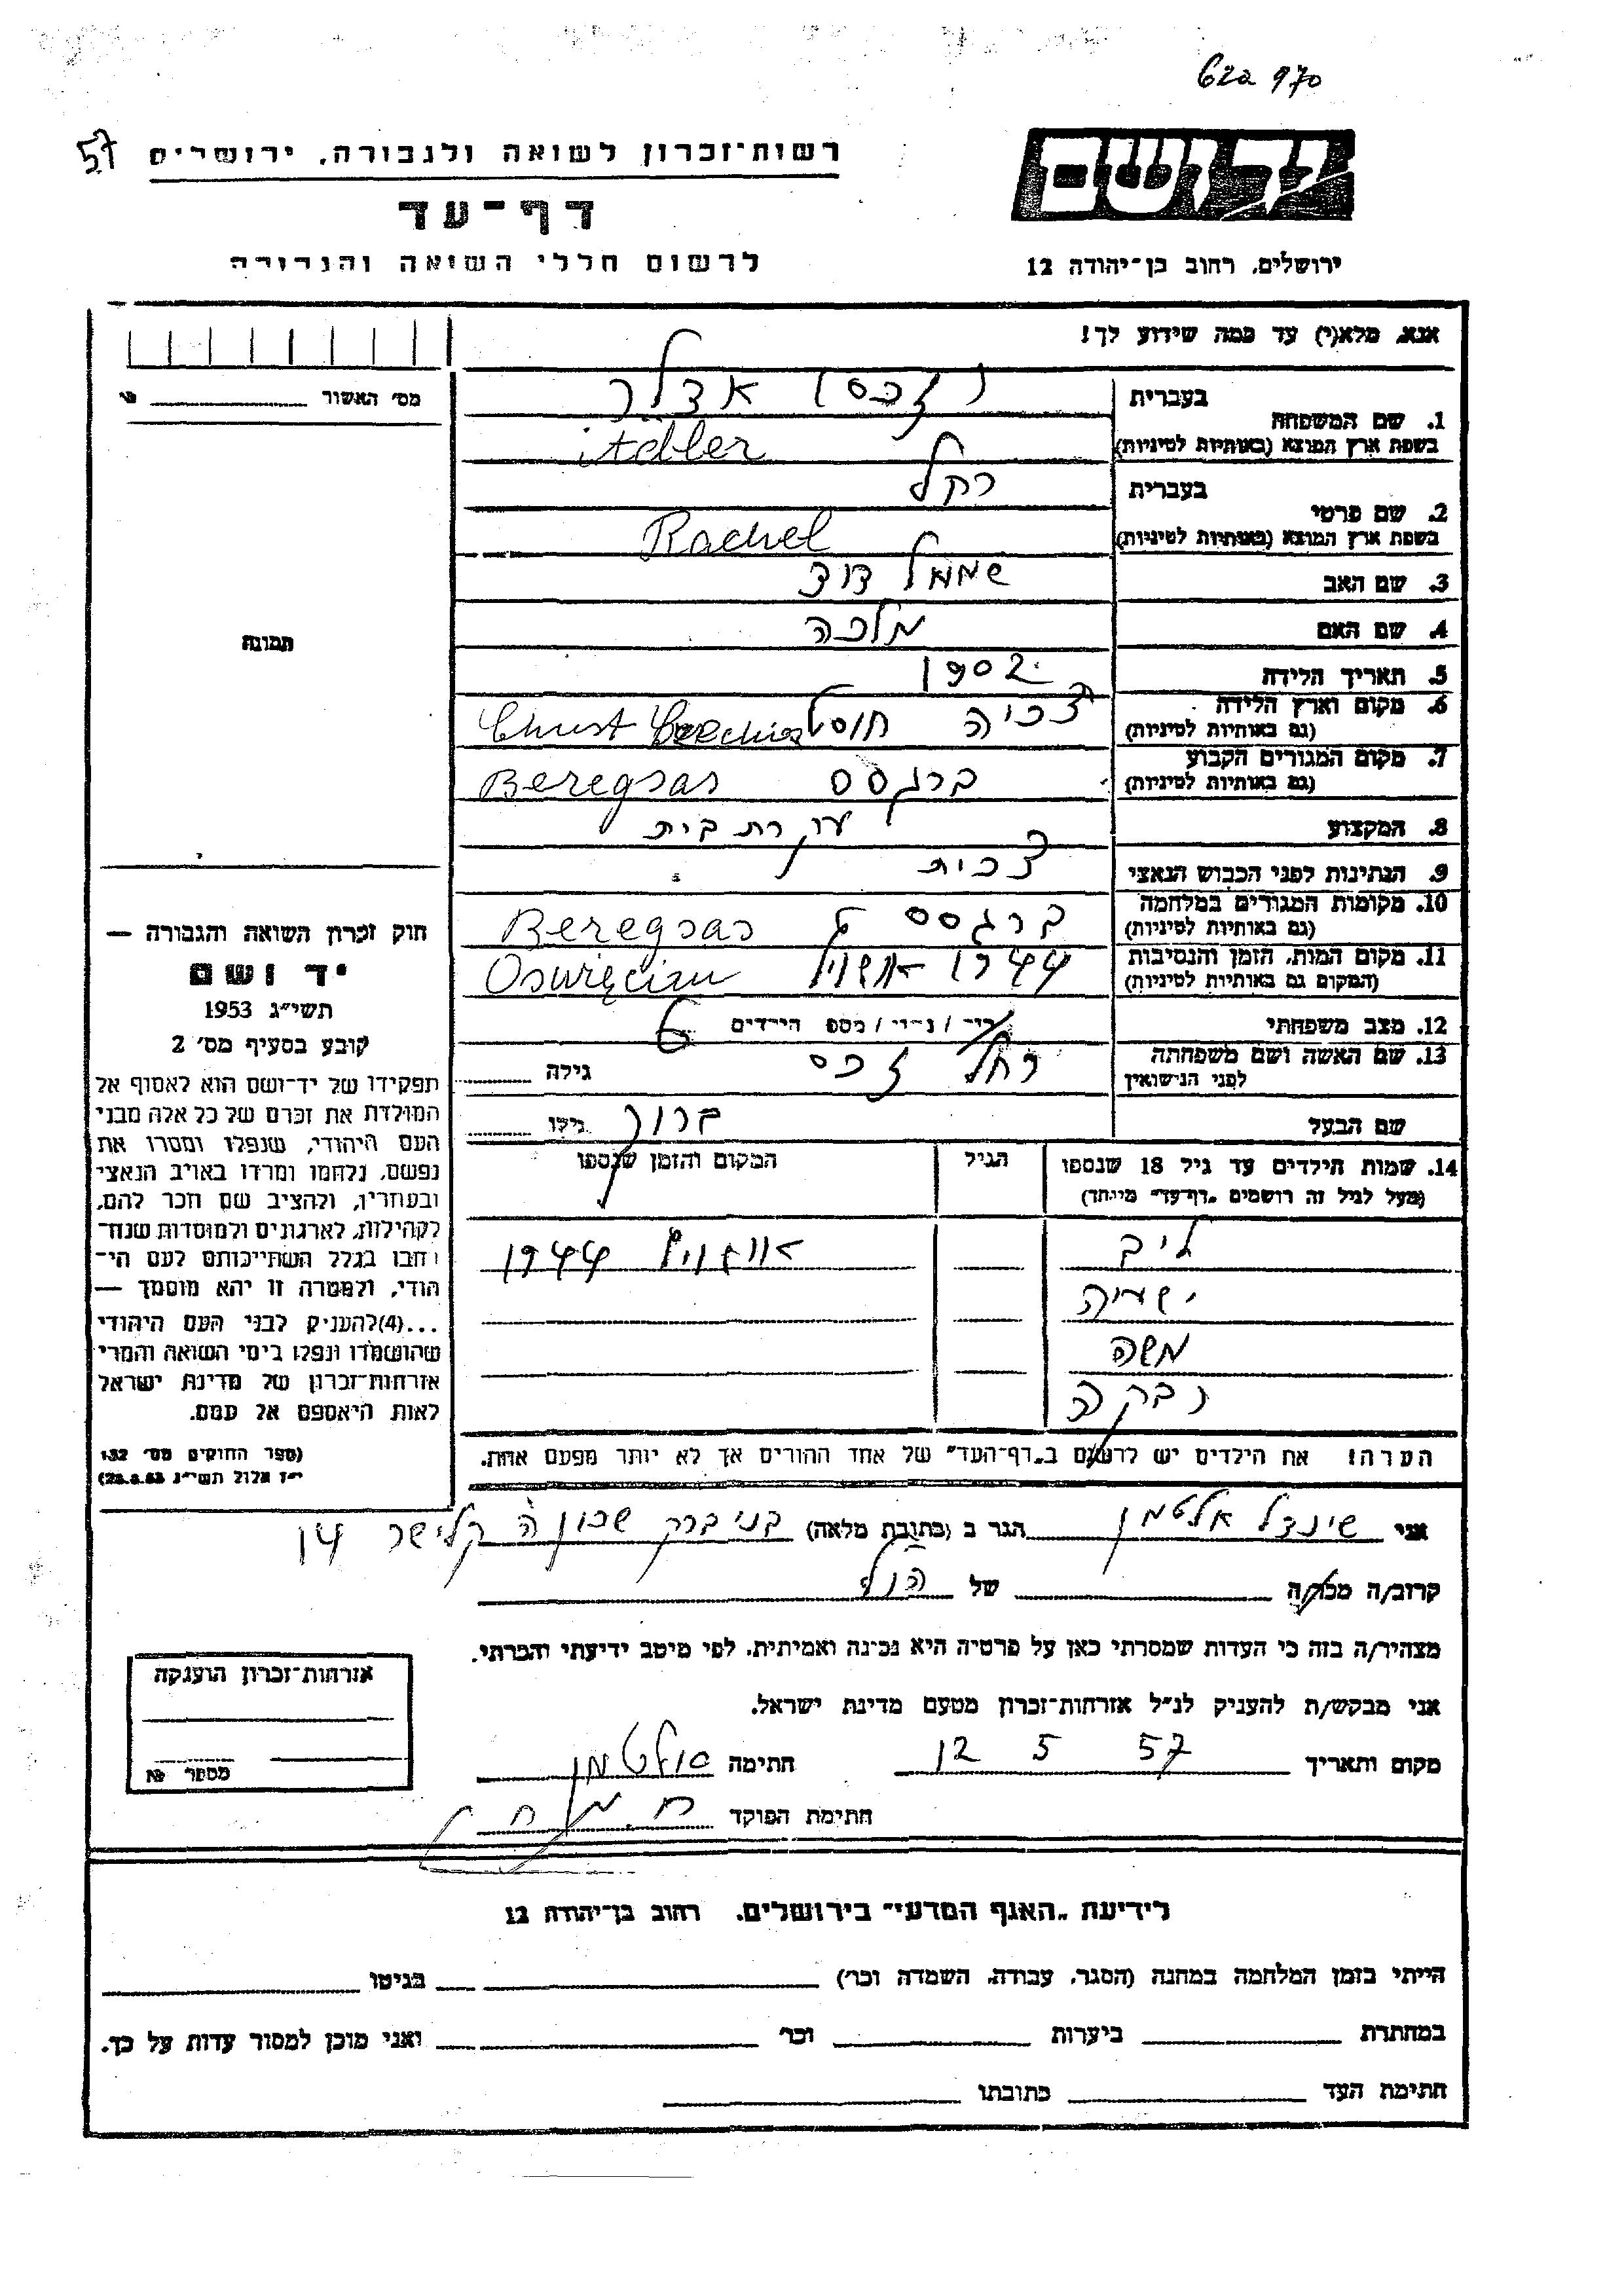 62a 970
57
רשות־זכרון לשואה ולגבורה, ירושלים
יד ושם
דף-עד
לרשום חללי השואה והגבורה
ירושלים, רחוב בן־יהודה 12
אנא, מלא(י) עד כמה שידוע לך!
מס׳ האשור
1. שם המשפחה
בעברית אדלר
בשפת ארץ המוצא (באותיות לטיניות) Adler
2. שם פרטי
בעברית רחל
בשפת ארץ המוצא (באותיות לטיניות) Rachel
3. שם האב שמואל דוד
4. שם האם מלכה
תמונה
5. תאריך הלידה 1902
6. מקום וארץ הלידה (גם באותיות לטיניות) צכיה חוסט Chust
7. מקום המגורים הקבוע (גם באותיות לטיניות) ברגסס Beregsas
8. המקצוע עקרת בית
9. הנתינות לפני הכבוש הנאצי צכית
10. מקומות המגורים במלחמה (גם באותיות לטיניות) ברגסס Beregsas
11. מקום המות, הזמן והנסיבות (המקום גם באותיות לטיניות) 1944 Oswięcim
12. מצב משפחתי רוו׳ / נשוי / מספר הילדים 6
13. שם האשה ושם משפחתה לפני הנישואין רחל זכס גילה
שם הבעל ברוך גילו
14. שמות הילדים עד גיל 18 שנספו
(מעל לגיל זה רושמים „דף־עד״ מיוחד)
הגיל
המקום והזמן שנספו
ליב 1944
ישעיה
משה
רבקה
הערה! את הילדים יש לרשום ב„דף־העד״ של אחד ההורים אך לא יותר מפעם אחת.
חוק זכרון השואה והגבורה —
יד ושם
תשי״ג 1953
קובע בסעיף מס׳ 2
תפקידו של יד־ושם הוא לאסוף אל
המולדת את זכרם של כל אלה מבני
העם היהודי, שנפלו ומסרו את
נפשם, נלחמו ומרדו באויב הנאצי
ובעוזריו, ולהציב שם וזכר להם,
לקהילות, לארגונים ולמוסדות שנח־
רבו בגלל השתייכותם לעם הי־
הודי, ולמטרה זו יהא מוסמך —
...(4)להעניק לבני העם היהודי
שהושמדו ונפלו בימי השואה והמרי
אזרחות־זכרון של מדינת ישראל
לאות היאספם אל עמם.
(ספר החוקים מס׳ 132
י״ז אלול תשי״ג 28.8.53)
אני שינדל אלטמן הגר ב (כתובת מלאה) בני ברק שכון ה קלישר 14
קרוב/ה מכר/ה של
מצהיר/ה בזה כי העדות שמסרתי כאן על פרטיה היא נכונה ואמיתית, לפי מיטב ידיעתי והכרתי.
אני מבקש/ת להעניק לנ״ל אזרחות־זכרון מטעם מדינת ישראל.
מקום ותאריך 12 5 57 חתימה אלטמן
חתימת הפוקד
אזרחות־זכרון הוענקה
מספר №
לידיעת „האגף המדעי״ בירושלים, רחוב בן־יהודה 12
הייתי בזמן המלחמה במחנה (הסגר, עבודה, השמדה וכו׳) בגיטו
במחתרת ביערות וכו׳ ואני מוכן למסור עדות על כך.
חתימת העד כתובתו